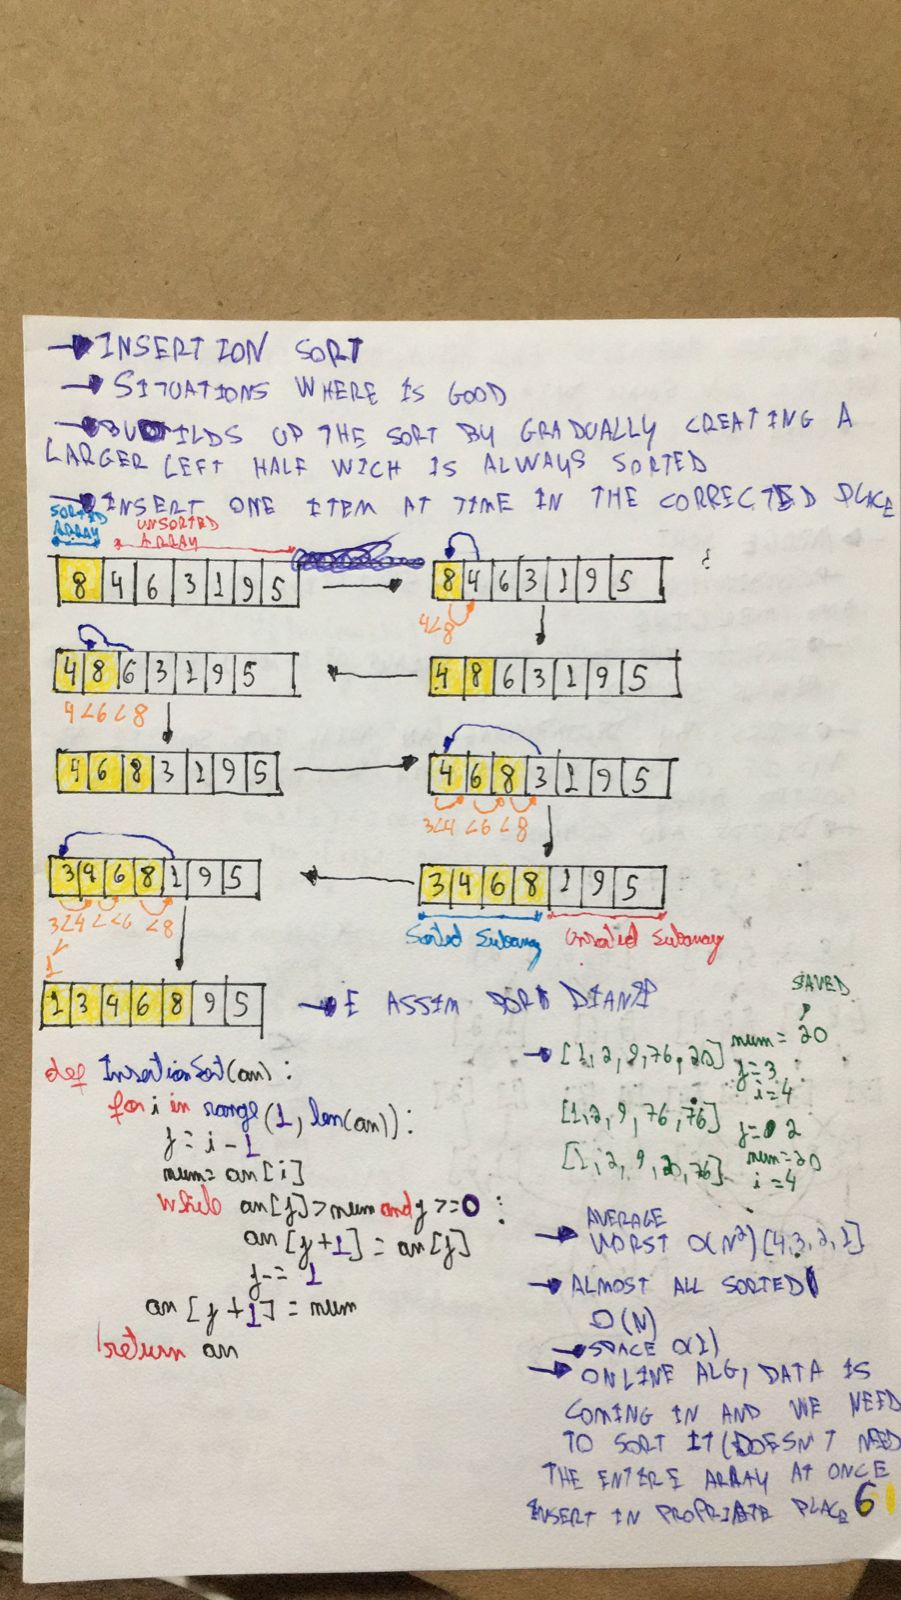 INSERTION SORT
SITUATIONS WHERE IS GOOD
BUILDS UP THE SORT BY GRADUALLY CREATING A
LARGER LEFT HALF WICH IS ALWAYS SORTED
INSERT ONE ITEM AT TIME IN THE CORRECTED PLACE
SORTED
ARRAY
UNSORTED
ARRAY
8 4 6 3 1 9 5
8 4 6 3 1 9 5
4<8
4 8 6 3 1 9 5
4<6<8
4 8 6 3 1 9 5
4 6 8 3 1 9 5
4 6 8 3 1 9 5
3<4 <6 <8
3 4 6 8 1 9 5
3<4 < <6 <8
<
1
3 4 6 8 1 9 5
Sorted Subarray
Unsorted Subarray
1 3 4 6 8 9 5
E ASSIM POR DIANTE
def InsertionSort(arr):
for i in range(1, len(arr)):
j = i - 1
num = arr[i]
while arr[j] > num and j >= 0 :
arr[j+1] = arr[j]
j -= 1
arr[j+1] = num
return arr
SAVED
[1, 2, 9, 76, 20] num = 20
j = 3
i = 4
[1, 2, 9, 76, 76] j = 2
[1, 2, 9, 20, 76] num = 20
i = 4
AVERAGE
WORST O(N²) [4,3,2,1]
ALMOST ALL SORTED
O(N)
SPACE O(1)
ONLINE ALG, DATA IS
COMING IN AND WE NEED
TO SORT IT (DOESN'T NEED
THE ENTIRE ARRAY AT ONCE
INSERT IN PROPRIATE PLACE 6